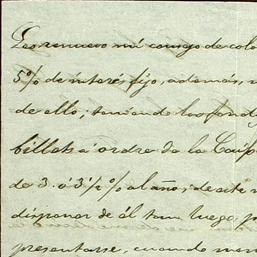 Les renuevo mi consejo de colo
5% de interés fijo, además,
de ello; teniendo los fond
billets á ordre de la Caiss
de 3. á 3½% al año; de este
disponer de él tan luego
presentarse, cuando men